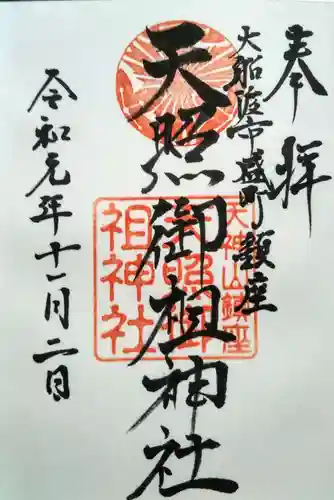 奉拝
大船渡市盛町鎮座
天照御祖神社
令和元年十一月二日
天神山鎮座
天照御
祖神社